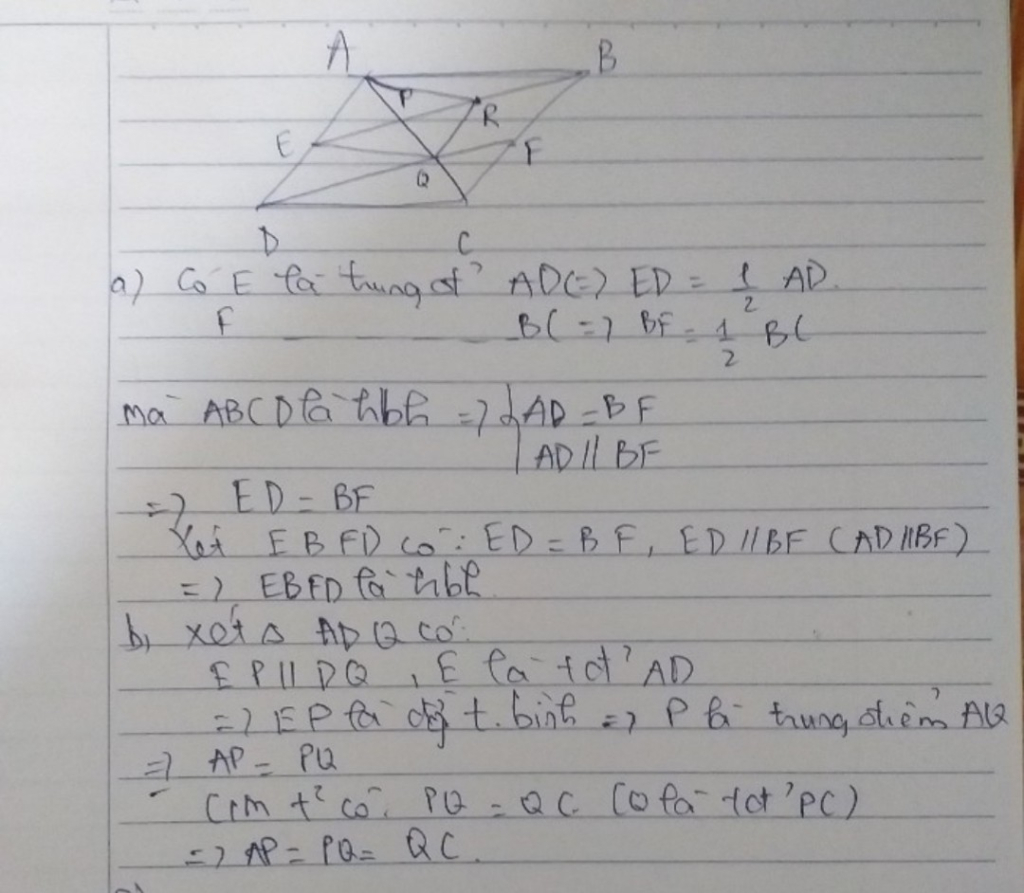 A
B
P
R
E
F
Q
D
C
a) Có E là trung đ' AD (=) ED = 1/2 AD.
F ________ BC => BF = 1/2 BC
mà ABCD là hbh => { AD = BF
AD // BF
=> ED = BF
Xét EBFD có: ED = BF, ED // BF (AD // BF)
=> EBFD là hbh
b, xét Δ ADQ có:
EP // DQ, E là tđ' AD
=> EP là đg t. bình => P là trung điểm AQ
=> AP = PQ
Cm t² có: PQ = QC (Q là tđ' PC)
=> AP = PQ = QC.